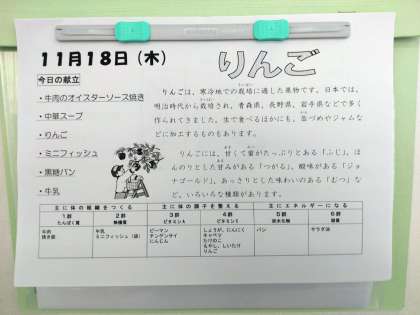 11月18日（木）
りんご
今日の献立
・牛肉のオイスターソース焼き
・中華スープ
・りんご
・ミニフィッシュ
・黒糖パン
・牛乳
りんごは、寒冷地での栽培に適した果物です。日本では、
明治時代から栽培され、青森県、長野県、岩手県などで多く
作られてきました。生で食べるほかにも、缶づめやジャムな
どに加工するものもあります。
りんごには、甘くて蜜がたっぷりとある「ふじ」、ほ
んのりとした甘みがある「つがる」、酸味がある「ジョ
ナゴールド」、あっさりとした味わいのある「むつ」な
ど、いろいろな種類があります。
主に体の組織をつくる
主に体の調子を整える
主にエネルギーになる
1群 2群 3群 4群 5群 6群
たんぱく質 無機質 ビタミンA ビタミンC 炭水化物 脂質
牛肉
焼き豚
牛乳
ミニフィッシュ（袋）
ピーマン
チンゲンサイ
にんじん
しょうが、にんにく
キャベツ
たけのこ
もやし、しいたけ
りんご
パン
サラダ油